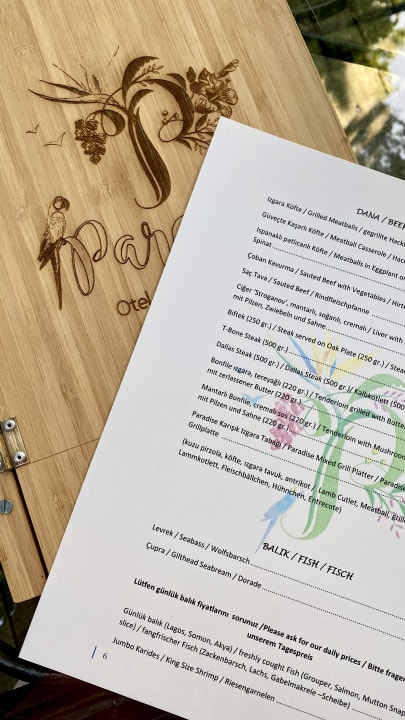 Para
Otel
DANA / BEEF
Izgara Köfte / Grilled Meatballs / gegrillte Hack
Güveçte Kaşarlı Köfte / Meatball Casserole / Hac
Ispanaklı patlıcanlı Köfte / Meatballs in Eggplant or
Spinat
Çoban Kavurma / Sauted Beef with Vegetables / Hirte
Saç Tava / Sauted Beef / Rindfleischpfanne
Ciğer 'Stroganov', mantarlı, soğanlı, cremalı / Liver with
mit Pilzen, Zwiebeln und Sahne
Biftek (250 gr.) / Steak served on Oak Plate (250 gr.) / Stea
T-Bone Steak (500 gr.)
Dallas Steak (500 gr.) / Dallas Steak (500 gr.) / Kalbkotlett (500
Bonfile ızgara, tereyağlı (220 gr.) / Tenderloin grilled with Butt
mit zerlassener Butter (220 gr.)
Mantarlı Bonfile, cremalı sos (220 gr.) / Tenderloin with Mushroom
mit Pilzen und Sahne (220 gr.)
Paradise Karışık Izgara Tabağı / Paradise Mixed Grill Platter / Paradise
Grillplatte
(kuzu pirzola, köfte, ızgara tavuk, antrikot / Lamb Cutlet, Meatball, grill
Lammkotlett, Fleischbällchen, Hühnchen, Entrecote)
BALIK / FISH / FISCH
Levrek / Seabass / Wolfsbarsch
Çupra / Gilthead Seabream / Dorade
Lütfen günlük balık fiyatlarını sorunuz /Please ask for our daily prices / Bitte frager
unserem Tagespreis
Günlük balık (Lagos, Somon, Akya) / freshly cought Fish (Grouper, Salmon, Mutton Snap
slice) / fangfrischer Fisch (Zackenbarsch, Lachs, Gabelmakrele –Scheibe)
Jumbo Karides / King Size Shrimp / Riesengarnelen
6